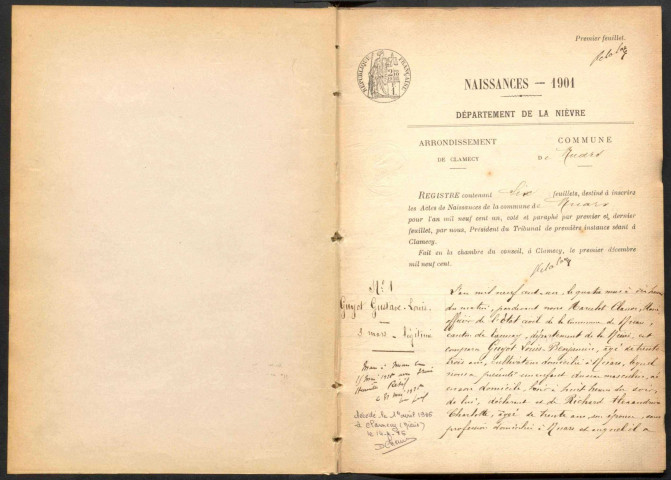 Premier feuillet.
RÉPUBLIQUE FRANÇAISE
NAISSANCES — 1901
DÉPARTEMENT DE LA NIÈVRE
ARRONDISSEMENT
DE CLAMECY
COMMUNE
DE Nuars
REGISTRE contenant Six feuillets, destiné à inscrire
les Actes de Naissances de la commune de Nuars
pour l'an mil neuf cent un, coté et paraphé par premier et dernier
feuillet, par nous, Président du Tribunal de première instance séant à
Clamecy.
Fait en la chambre du conseil, à Clamecy, le premier décembre
mil neuf cent.
N° 1
Guyot Gustave Louis
3 mars - légitime
Décédé le 1er avril
à Clamecy (Nièvre)
L'an mil neuf cent un, le quatre mars à dix heures
du matin, pardevant nous
officier de l'Etat civil de la commune de Nuars,
canton de Tannay, département de la Nièvre, est
comparu Guyot Louis Benjamin, âgé de trente
trois ans, cultivateur domicilié à Nuars, lequel
nous a présenté un enfant du sexe masculin, né
en son domicile, hier à huit heures du soir,
de lui, déclarant et de Richard Alexandrine
Charlotte, âgée de trente ans, son épouse, sans
profession domiciliée à Nuars et auquel il a